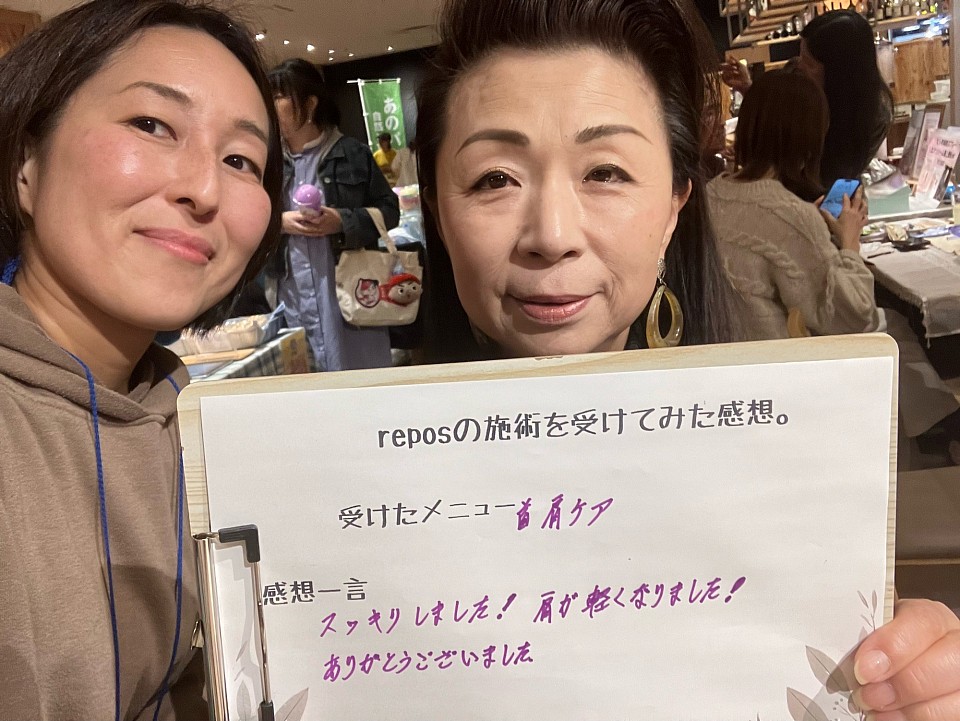 あのパ
reposの施術を受けてみた感想。
受けたメニュー 首肩ケア
感想一言
スッキリしました! 肩が軽くなりました!
ありがとうございました